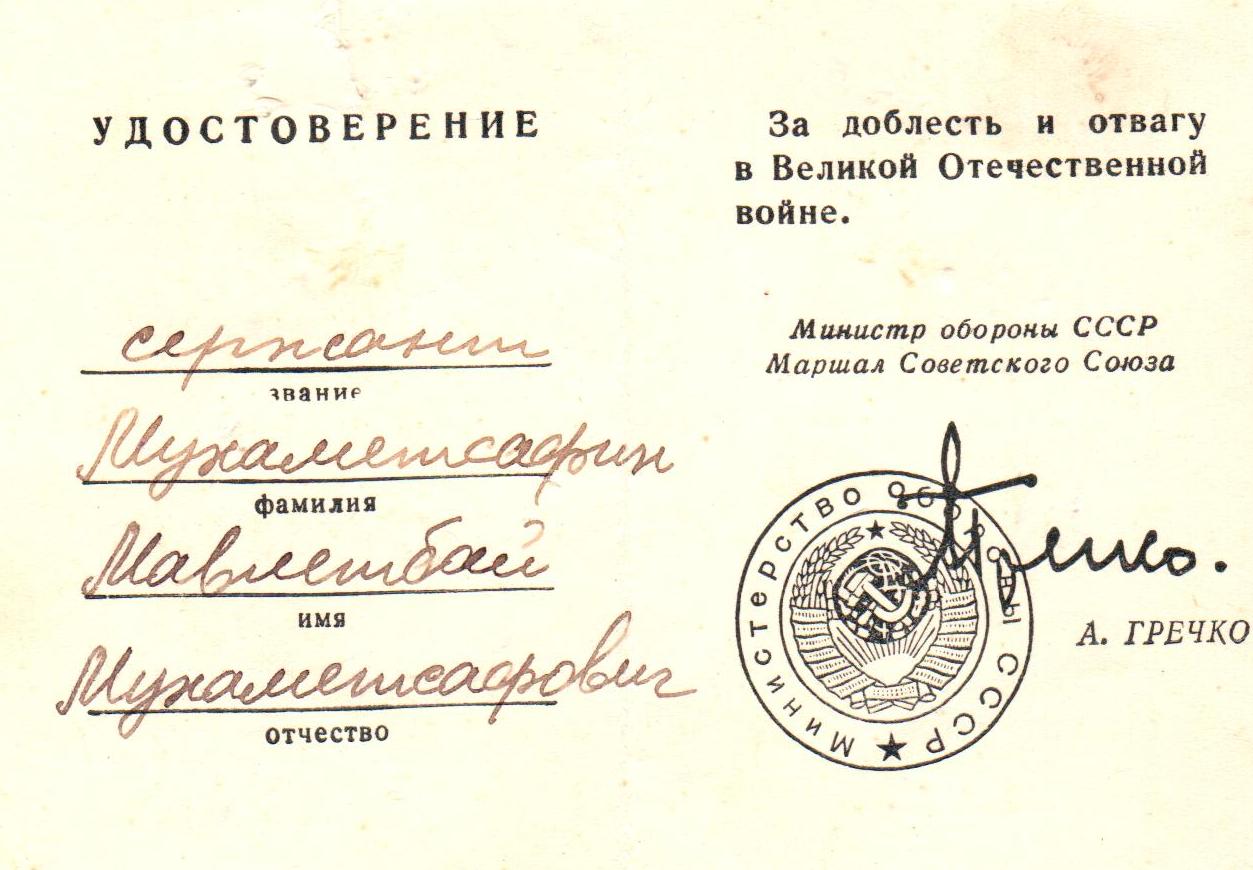 УДОСТОВЕРЕНИЕ
сержант
звание
Мухаметсафин
фамилия
Мавлетбай
имя
Мухаметсафович
отчество
За доблесть и отвагу
в Великой Отечественной
войне.
Министр обороны СССР
Маршал Советского Союза
Министерство Обороны СССР
А. ГРЕЧКО